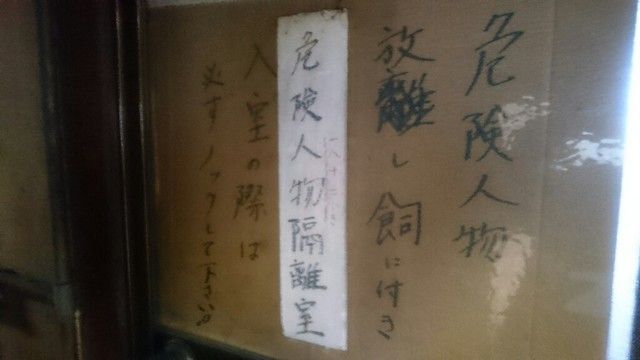 危険人物
放離し飼に付き
危険人物隔離室
入室の際は
必ずノックして下さい。